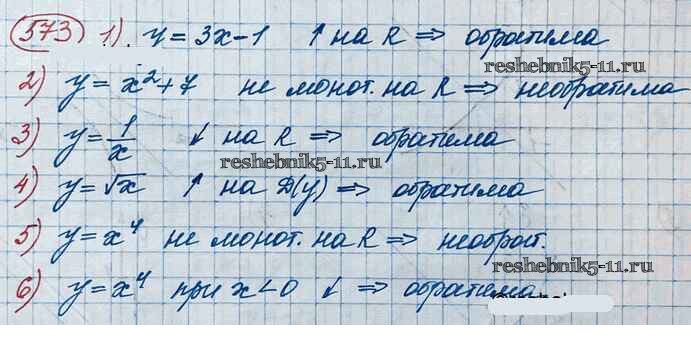 573 1). y = 3x-1 ↑ на R ⇒ обратима
reshebnik5-11.ru
2) y = x²+7 не монот. на R ⇒ необратима
3) y = 1/x ↓ на R ⇒ обратима
reshebnik5-11.ru
4) y = √x ↑ на D(y) ⇒ обратима
5) y = x⁴ не монот. на R ⇒ необрат.
reshebnik5-11.ru
6) y = x⁴ при x<0 ↓ ⇒ обратима